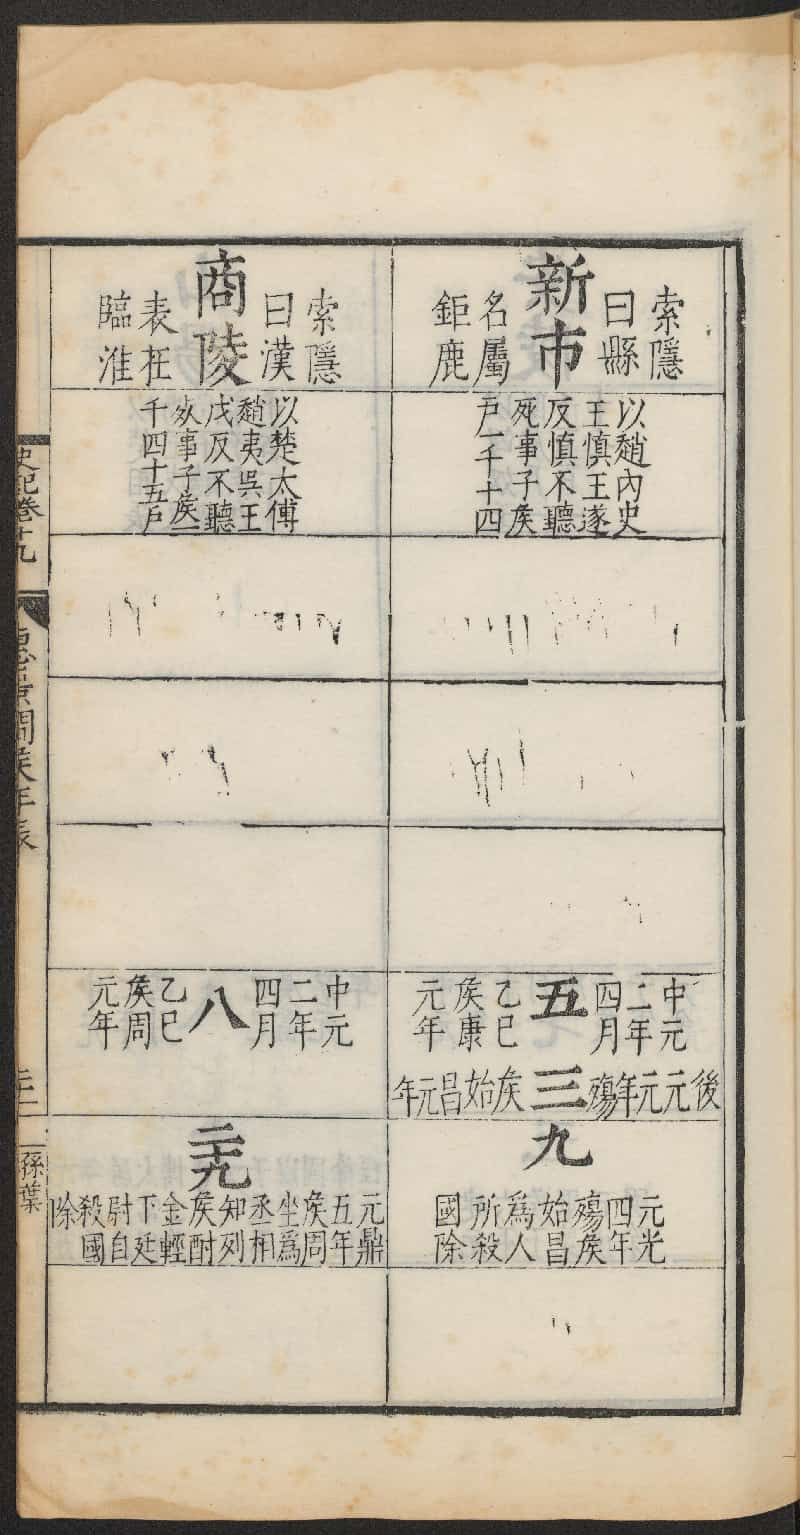 新市
索隱
曰縣
名屬
鉅鹿
以趙內史
王慎王遂
反慎不聽
死事子侯
戶一千十四
中元
二年
四月
五
乙巳
侯康
元年
後元元年殤
三
侯始昌元年
九
元光
四年
殤侯
始昌
為人
所殺
國除
商陵
索隱
曰漢
表在
臨淮
以楚太傅
趙夷吳王
戊反不聽
死事子侯一
千四十五戶
中元
二年
四月
八
乙巳
侯周
元年
二十九
元鼎
五年
侯周
坐為
丞相
知列
侯酎
金輕
下廷
尉自
殺國
除
史記卷十九
惠景間侯年表
孫葉